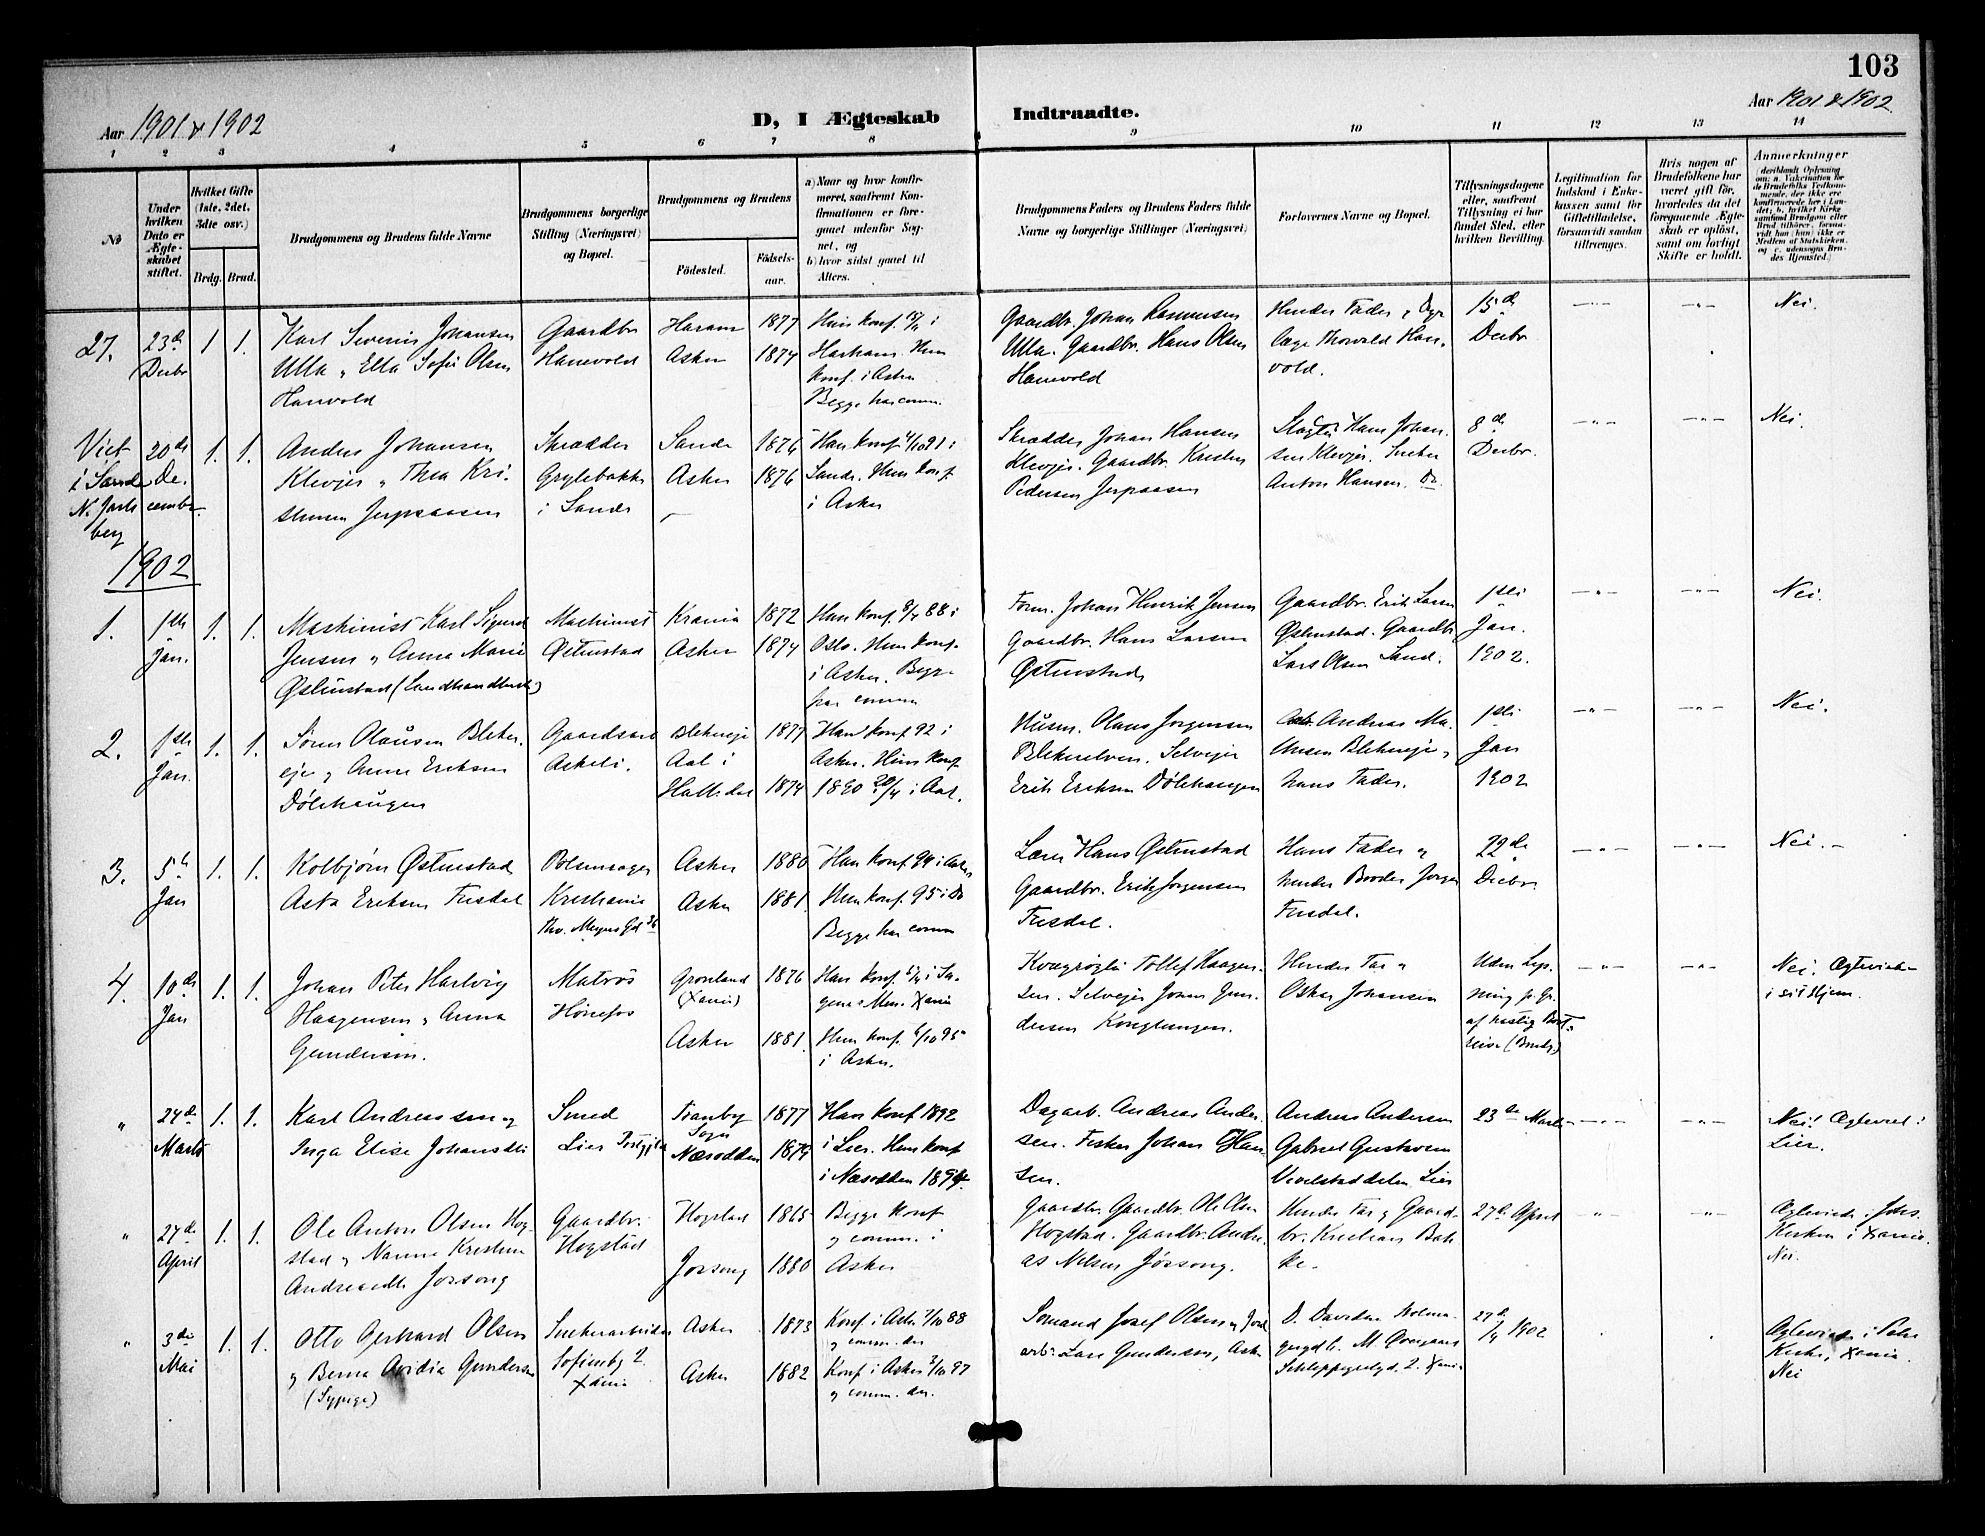 103
Aar 1901 & 1902
D, I Ægteskab Indtraadte.
Aar 1901 & 1902
1 2 3 4 5 6 7 8 9 10 11 12 13 14
No
Under hvilken Dato er Ægteskabet stiftet.
Hvilket Gifte (1ste, 2det, 3die osv.)
Brdg. Brud.
Brudgommens og Brudens fulde Navne
Brudgommens borgerlige Stilling (Næringsvei) og Bopæl.
Brudgommens og Brudens
Fødested.
Fødsels-aar.
a) Naar og hvor konfirmeret, saafremt Konfirmationen er foregaaet udenfor Sognet, og
b) hvor sidst gaaet til Alters.
Brudgommens Faders og Brudens Faders fulde Navne og borgerlige Stillinger (Næringsvei)
Forlovernes Navne og Bopæl.
Tillysningsdagene eller, saafremt Tillysning ei har fundet Sted, efter hvilken Bevilling.
Legitimation for Indskud i Enkekassen samt for Giftetilladelse, forsaavidt saadan tiltrænges.
Hvis nogen af Brudefolkene har været gift før, hvorledes da det foregaaende Ægteskab er opløst, samt om lovligt Skifte er holdt.
Anmerkninger
27. 23de Decbr 1 1. Karl Severin Johansen Ulla og Ella Sofie Olsen Hanevold
Gaardbr Hanevold
Haram 1877
Asker 1874
Harham. Hun konf. i Asker Begge har comm.
Gaardbr. Johan Rasmussen Ulla. Gaardbr. Hans Olsen Hanevold
Hendes Fader og Thorvald Hanevold.
15de Decbr
Nei.
Viet i Sande N. Jarlsberg 20de December 1. 1.
Anders Johansen Klevjer og Thea Kristensen Jerpaasen
Skrædder Grytebakke i Sande
Sande 1876
Asker 1876
Han konf 4/10 91 i Sande. Hun konf i Asker
Skrædder Johan Hansen Klevjer. Gaardbr. Kristen Pedersen Jerpaasen
Hans Johansen Klevjer. Snekker Anton Hansen. Do.
8de Decbr.
Nei.
1902
1. 1ste Jan. 1. 1.
Maskinist Karl Sigurd Jensen og Anna Marie Østenstad (Landhandlerske)
Maskinist Østenstad
Krania 1872
Asker 1874
Han konf 8/4 88 i Oslo. Hun konf. i Asker. Begge har comm
Form. Johan Henrik Jensen Gaardbr. Hans Larsen Østenstad
Gaardbr. Erik Larsen Østenstad. Gaardbr Lars Olsen Sand.
1ste Jan. 1902.
Nei.
2. 1ste Jan. 1. 1.
Søren Olausen Blekereje og Anne Eriksen Dølehaugen
Gaardsarb Askeli.
Blekereje 1877
Aal i Hallidal 1874
Han konf 92 i Asker. Hun konf 1890 20/4 i Aal.
Husm. Olaus Jørgensen Blekerelven. Selveier Erik Eriksen Dølehaugen
Andreas Blekereje, hans Fader.
1ste Jan 1902
Nei.
3. 5te Jan 1. 1.
Kolbjørn Østenstad Asta Eriksen Fusdal
Pølsemager Kristiania Thv. Meyers Gd 36
Asker 1880
Asker 1881.
Han konf 94 i Asker Hun konf. 95 i Do Begge har comm
Lærer Hans Østenstad Gaardbr. Erik Jørgensen Fusdal.
Hans Fader og hendes Broder Jørgen Fusdal.
22de Decbr.
Nei.
4. 10de Jan 1. 1.
Johan Peter Hartvig Haagensen og Anna Gundersen.
Matros Hønefos
Grønland (Xania) 1876
Asker 1881.
Hun konf. 6/10 95 i Asker.
Tollef Haagensen. Selveier Johan Gundersen Konglungen.
Hendes Far og Oskar Johansen
Uden Lysning p. Gr. af hastig Bortreise (Brudg)
Nei. Ægteviede i sit Hjem.
" 24de Marts 1. 1.
Karl Andreassen og Inga Elise Johansdtr
Smed Lier Prstgjld
Tranby Sogn 1877
Næsodden 1879
Han konf 1892 i Lier. Hun konf i Næsodden 1894.
Dagarb. Andreas Andersen. Fisker Johan Hansen.
Andreas Andersen Gabriel Gustavsen Lier
23de Marts
Nei. Ægteviet i Lier.
" 27de April 1. 1.
Ole Anton Olsen Hogstad og Nanna Kristine Andreasdtr Jørsong
Gaardbr. Hogstad
Hogstad 1865
Jørsong 1880
Begge konf og comm. i Asker
Gaardbr. Ole Olsen Hogstad. Gaardbr. Andreas Nelsen Jørsong.
Hendes Far og Gaardbr. Kristian Bakke.
27de April
Ægteviede i Johs. Kirken i Xania. Nei.
" 3die Mai 1. 1.
Otto Gerhard Olsen og Berna Ovidia Gundersen (Sypige)
Snekkerarbeider Sofienbg 2. Xania
Asker 1873
Asker 1882
Konf. i Asker 7/10 88 og comm. der
Konf i Asker 3/10 97 og comm. der.
Sømand Josef Olsen og Jordarb. Lars Gundersen, Asker
D. Davidsen Holmengergd 6. M. Schleppegrelsgd. 2. Xania
27de/4 1902
Ægteviede i Petri Kirke, Xania. Nei